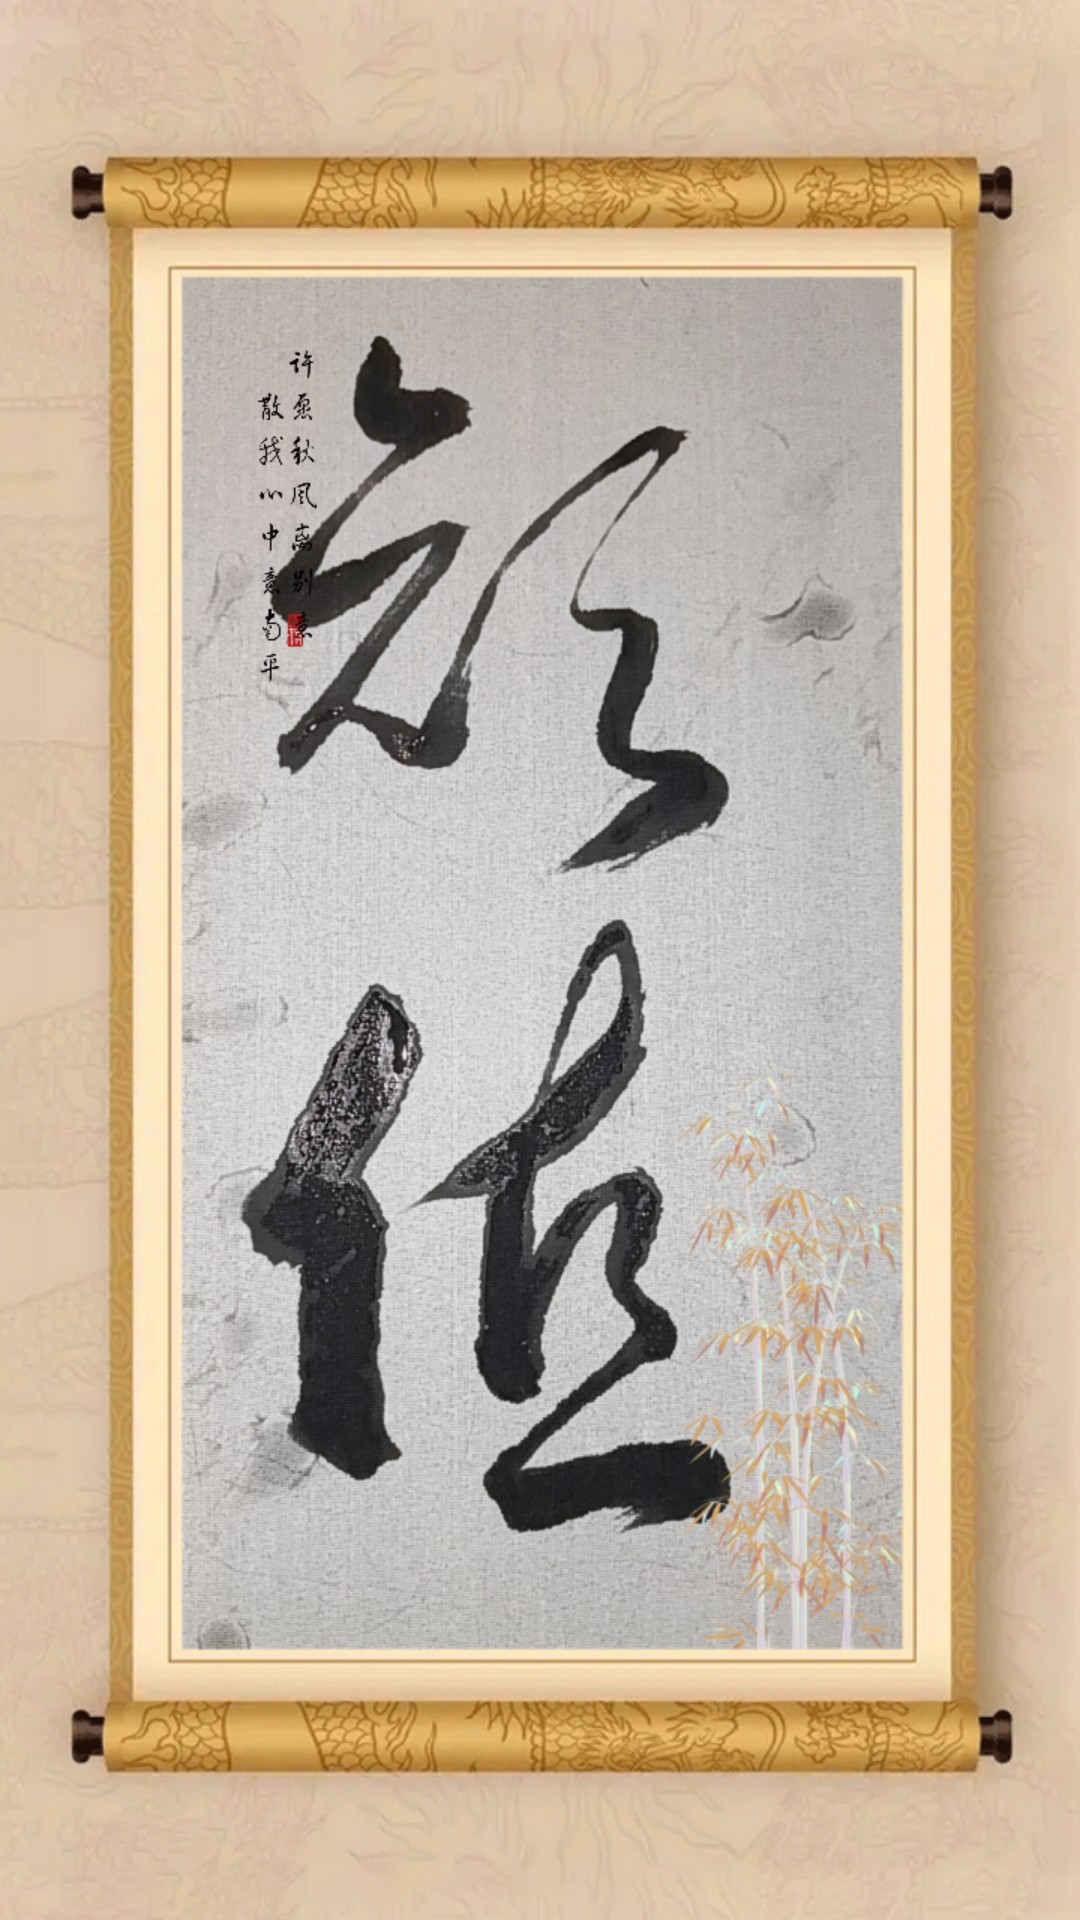 颜值
许愿秋风离别意
散我心中意南平